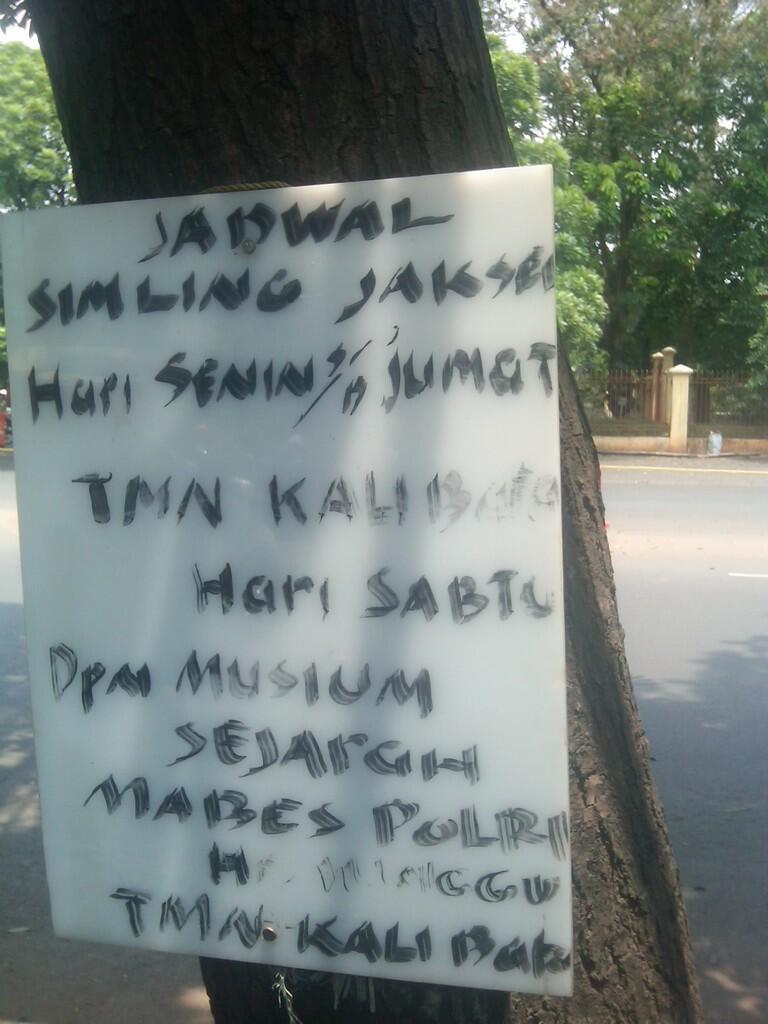 JADWAL
SIMLING JAKSEL
Hari SENIN S/d JUMaT
TMN KALIBata
Hari SABTU
DPN MUSIUM
SEJAraH
MABES POLRI
Hr. MINGGU
TMN KALIBata